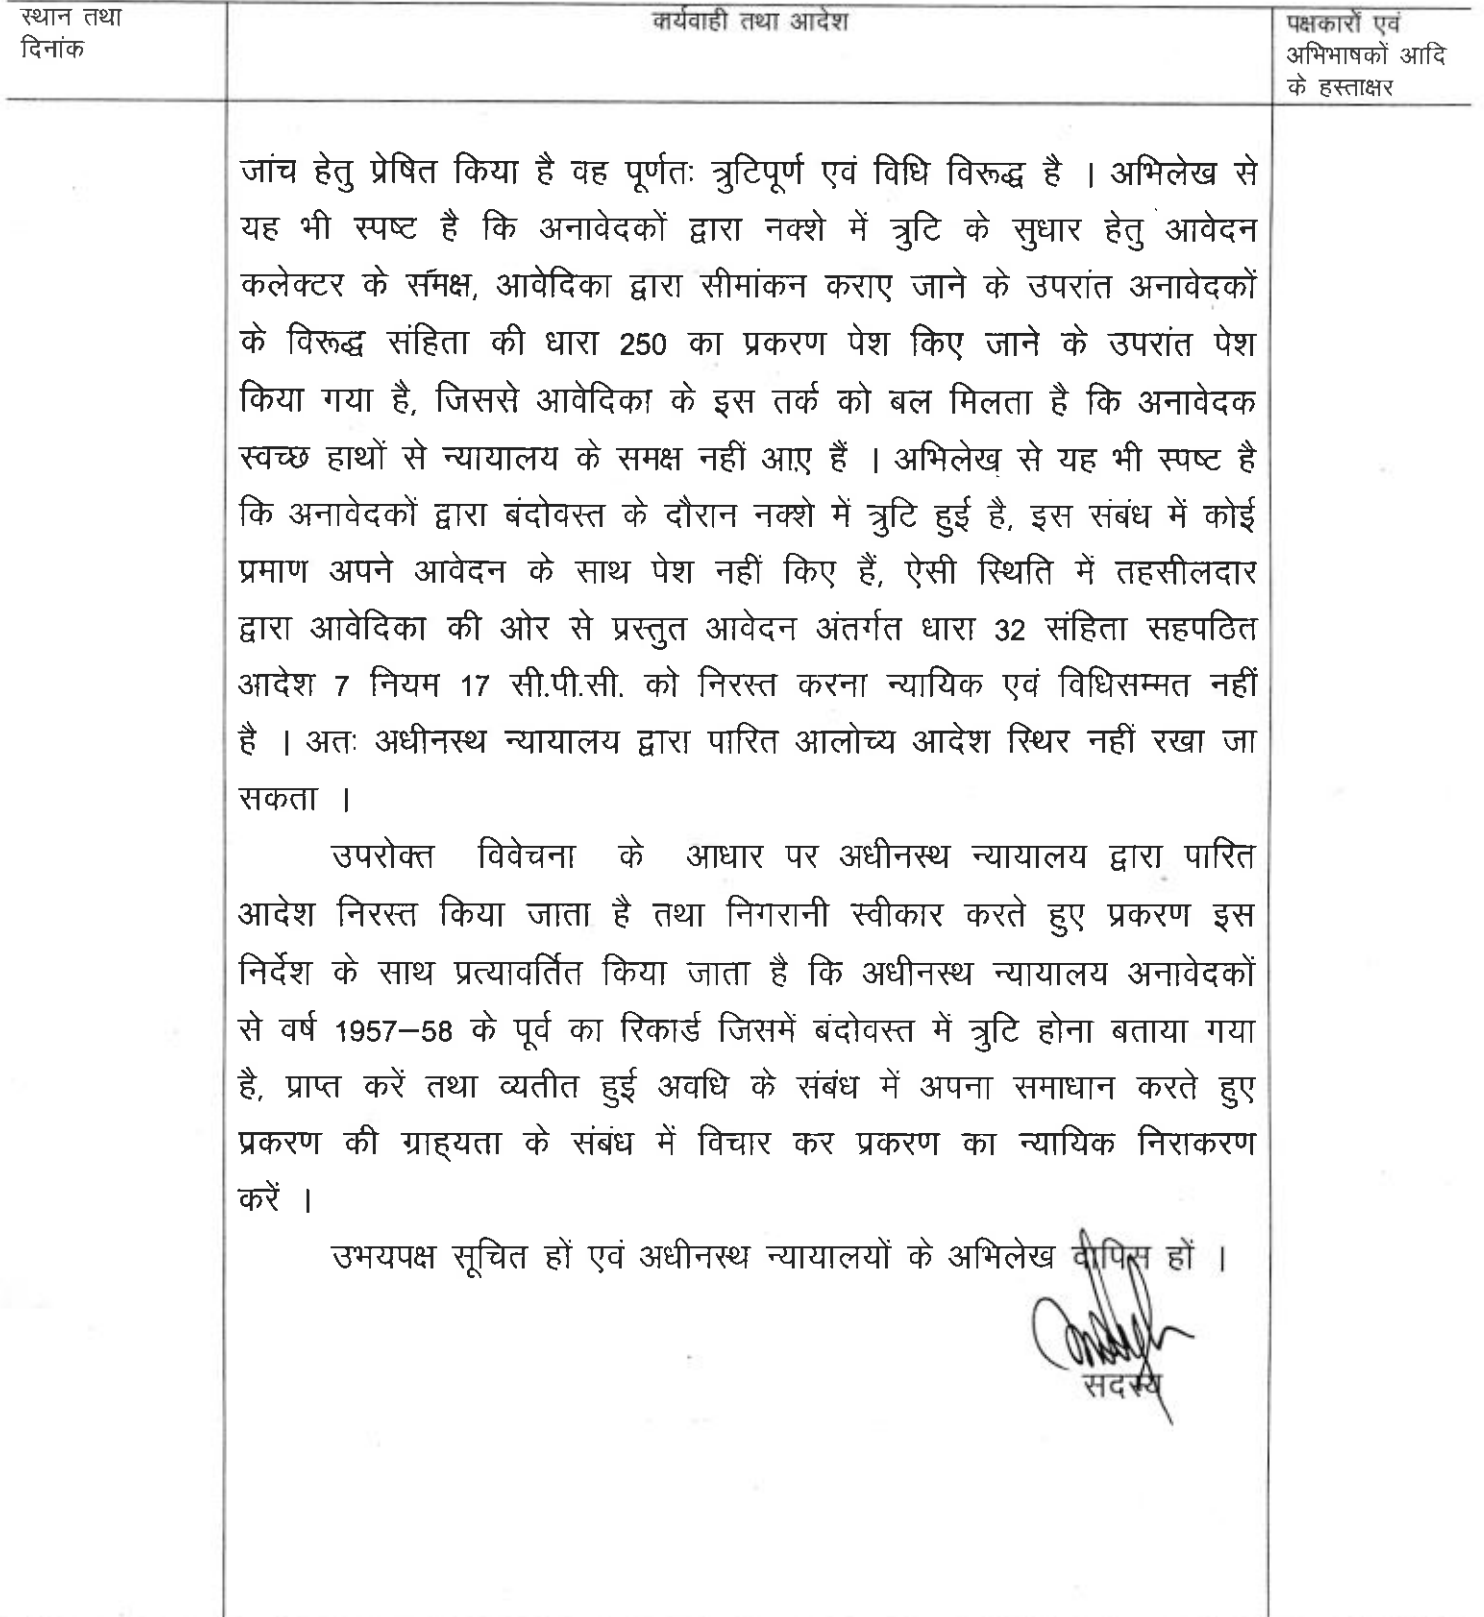 स्थान तथा
दिनांक
कार्यवाही तथा आदेश
पक्षकारों एवं
अभिभाषकों आदि
के हस्ताक्षर
जांच हेतु प्रेषित किया है वह पूर्णतः त्रुटिपूर्ण एवं विधि विरूद्ध है । अभिलेख से
यह भी स्पष्ट है कि अनावेदकों द्वारा नक्शे में त्रुटि के सुधार हेतु आवेदन
कलेक्टर के समक्ष, आवेदिका द्वारा सीमांकन कराए जाने के उपरांत अनावेदकों
के विरूद्ध संहिता की धारा 250 का प्रकरण पेश किए जाने के उपरांत पेश
किया गया है, जिससे आवेदिका के इस तर्क को बल मिलता है कि अनावेदक
स्वच्छ हाथों से न्यायालय के समक्ष नहीं आए हैं । अभिलेख से यह भी स्पष्ट है
कि अनावेदकों द्वारा बंदोवस्त के दौरान नक्शे में त्रुटि हुई है, इस संबंध में कोई
प्रमाण अपने आवेदन के साथ पेश नहीं किए हैं, ऐसी स्थिति में तहसीलदार
द्वारा आवेदिका की ओर से प्रस्तुत आवेदन अंतर्गत धारा 32 संहिता सहपठित
आदेश 7 नियम 17 सी.पी.सी. को निरस्त करना न्यायिक एवं विधिसम्मत नहीं
है । अतः अधीनस्थ न्यायालय द्वारा पारित आलोच्य आदेश स्थिर नहीं रखा जा
सकता ।
उपरोक्त विवेचना के आधार पर अधीनस्थ न्यायालय द्वारा पारित
आदेश निरस्त किया जाता है तथा निगरानी स्वीकार करते हुए प्रकरण इस
निर्देश के साथ प्रत्यावर्तित किया जाता है कि अधीनस्थ न्यायालय अनावेदकों
से वर्ष 1957–58 के पूर्व का रिकार्ड जिसमें बंदोवस्त में त्रुटि होना बताया गया
है, प्राप्त करें तथा व्यतीत हुई अवधि के संबंध में अपना समाधान करते हुए
प्रकरण की ग्राह्यता के संबंध में विचार कर प्रकरण का न्यायिक निराकरण
करें ।
उभयपक्ष सूचित हों एवं अधीनस्थ न्यायालयों के अभिलेख वापिस हों ।
सदस्य